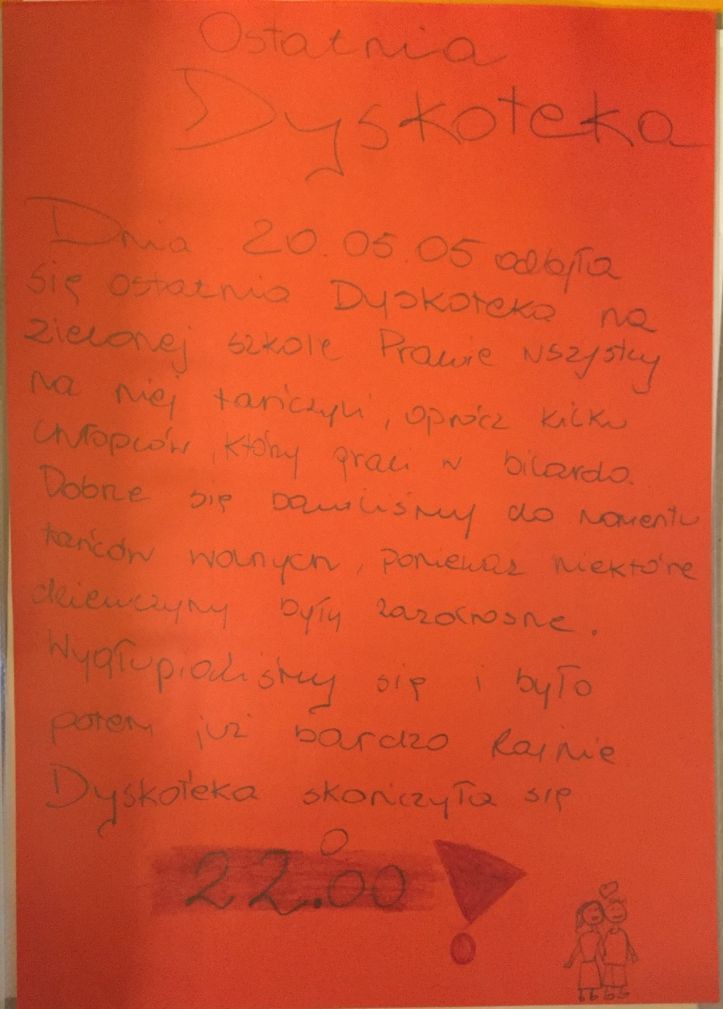 Ostatnia
Dyskoteka
Dnia 20.05.05 odbyła
się ostatnia Dyskoteka na
zielonej szkole Prawie wszystky
na niej tańczyli, oprócz kilku
chłopców, któży grali w bilardo.
Dobrze się bawiliśmy do momentu
tańców wolnych, ponieważ niektóre
dziewczyny były zazdrosne.
Wygłupialiśmy się i było
potem już bardzo fajnie
Dyskoteka skończyła się
o
22.00!